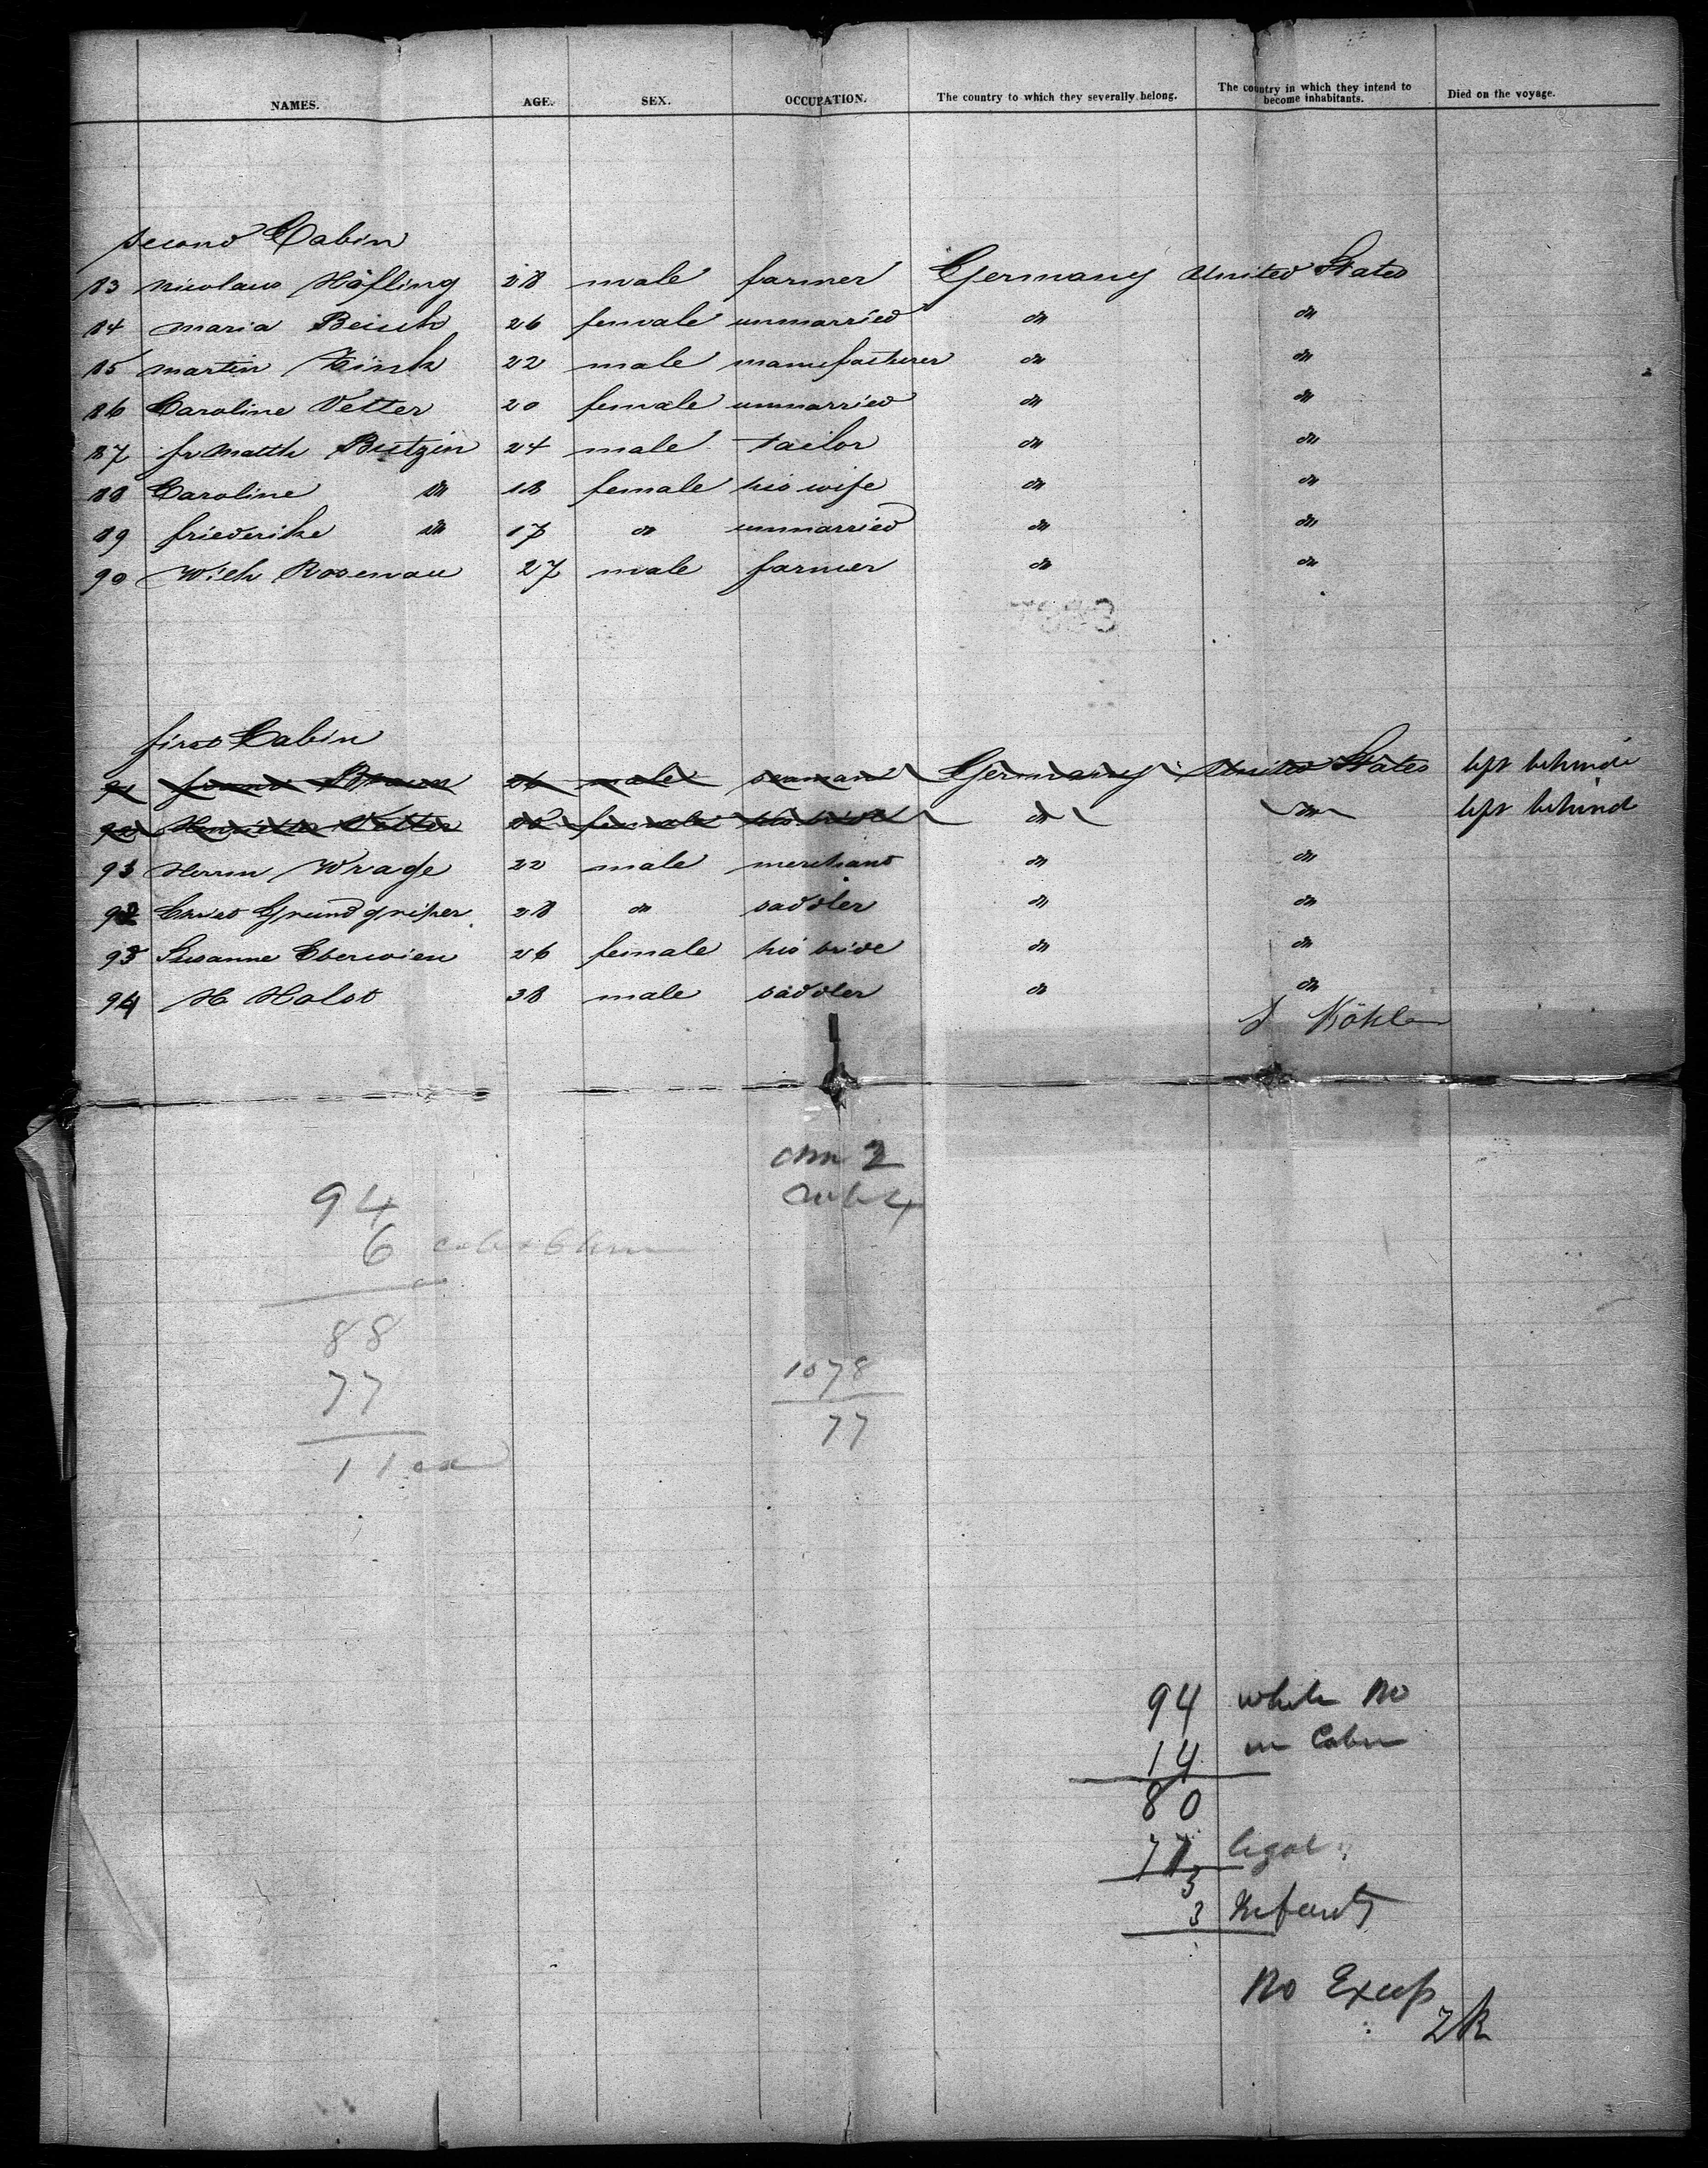 NAMES. AGE. SEX. OCCUPATION. The country to which they severally belong. The country in which they intend to become inhabitants. Died on the voyage.
second Cabin
83 Nicolaus Höfling 28 male farmer Germany United States
84 Maria Beisch 26 female unmarried do do
85 Martin Zink 22 male manufacturer do do
86 Caroline Vetter 20 female unmarried do do
87 fr Matth Butzin 24 male tailor do do
88 Caroline do 18 female his wife do do
89 friederike do 17 do unmarried do do
90 Wilh Rosenau 27 male farmer do do
first Cabin
91 26 male seaman Germany United States left behind
92 Henriette female his bride do do left behind
93 Herrm Wrage 22 male merchant do do
92 Christ Grundgriper 28 do saddler do do
93 Susanne Eberwien 26 female his bride do do
94 H Holst 38 male saddler do do
J Köhler
2
94
6
88
77
11
1078
77
94 whole No
14 in Cabin
80
77 legal
3
3 Infants
No Excess